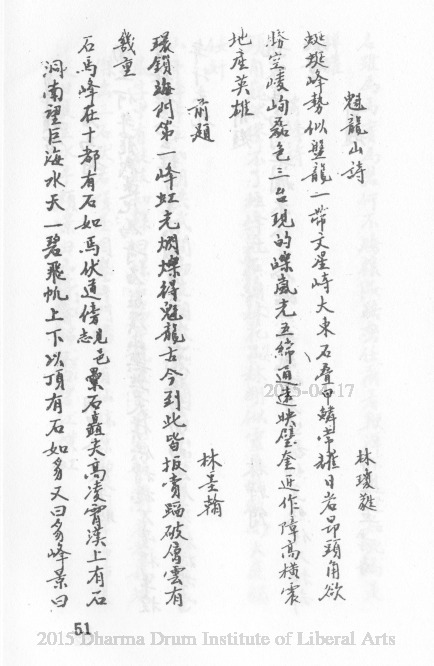 魁龍山詩 林瓊蕤
蜿蜒峰勢似盤龍一帶文星崎大東石疊甲鱗常耀日岩昂頭角欲
騰空崚峋磊色三台現的皪嵐光五綵通遠映璧奎近作障高橫震
地產英雄
前題 林墨翰
環鎖海門第一峰虹光燜燦得魁龍古今到此皆扳賞蹈破層雲有
幾重
石馬峰在十都有石如馬伏道傍見邑志纍石矗尖高凌霄漢上有石
洞南望巨海水天一碧飛帆上下以頂有石如多又曰多峰景曰
2015-04-17
51
2015 Dharma Drum Institute of Liberal Arts